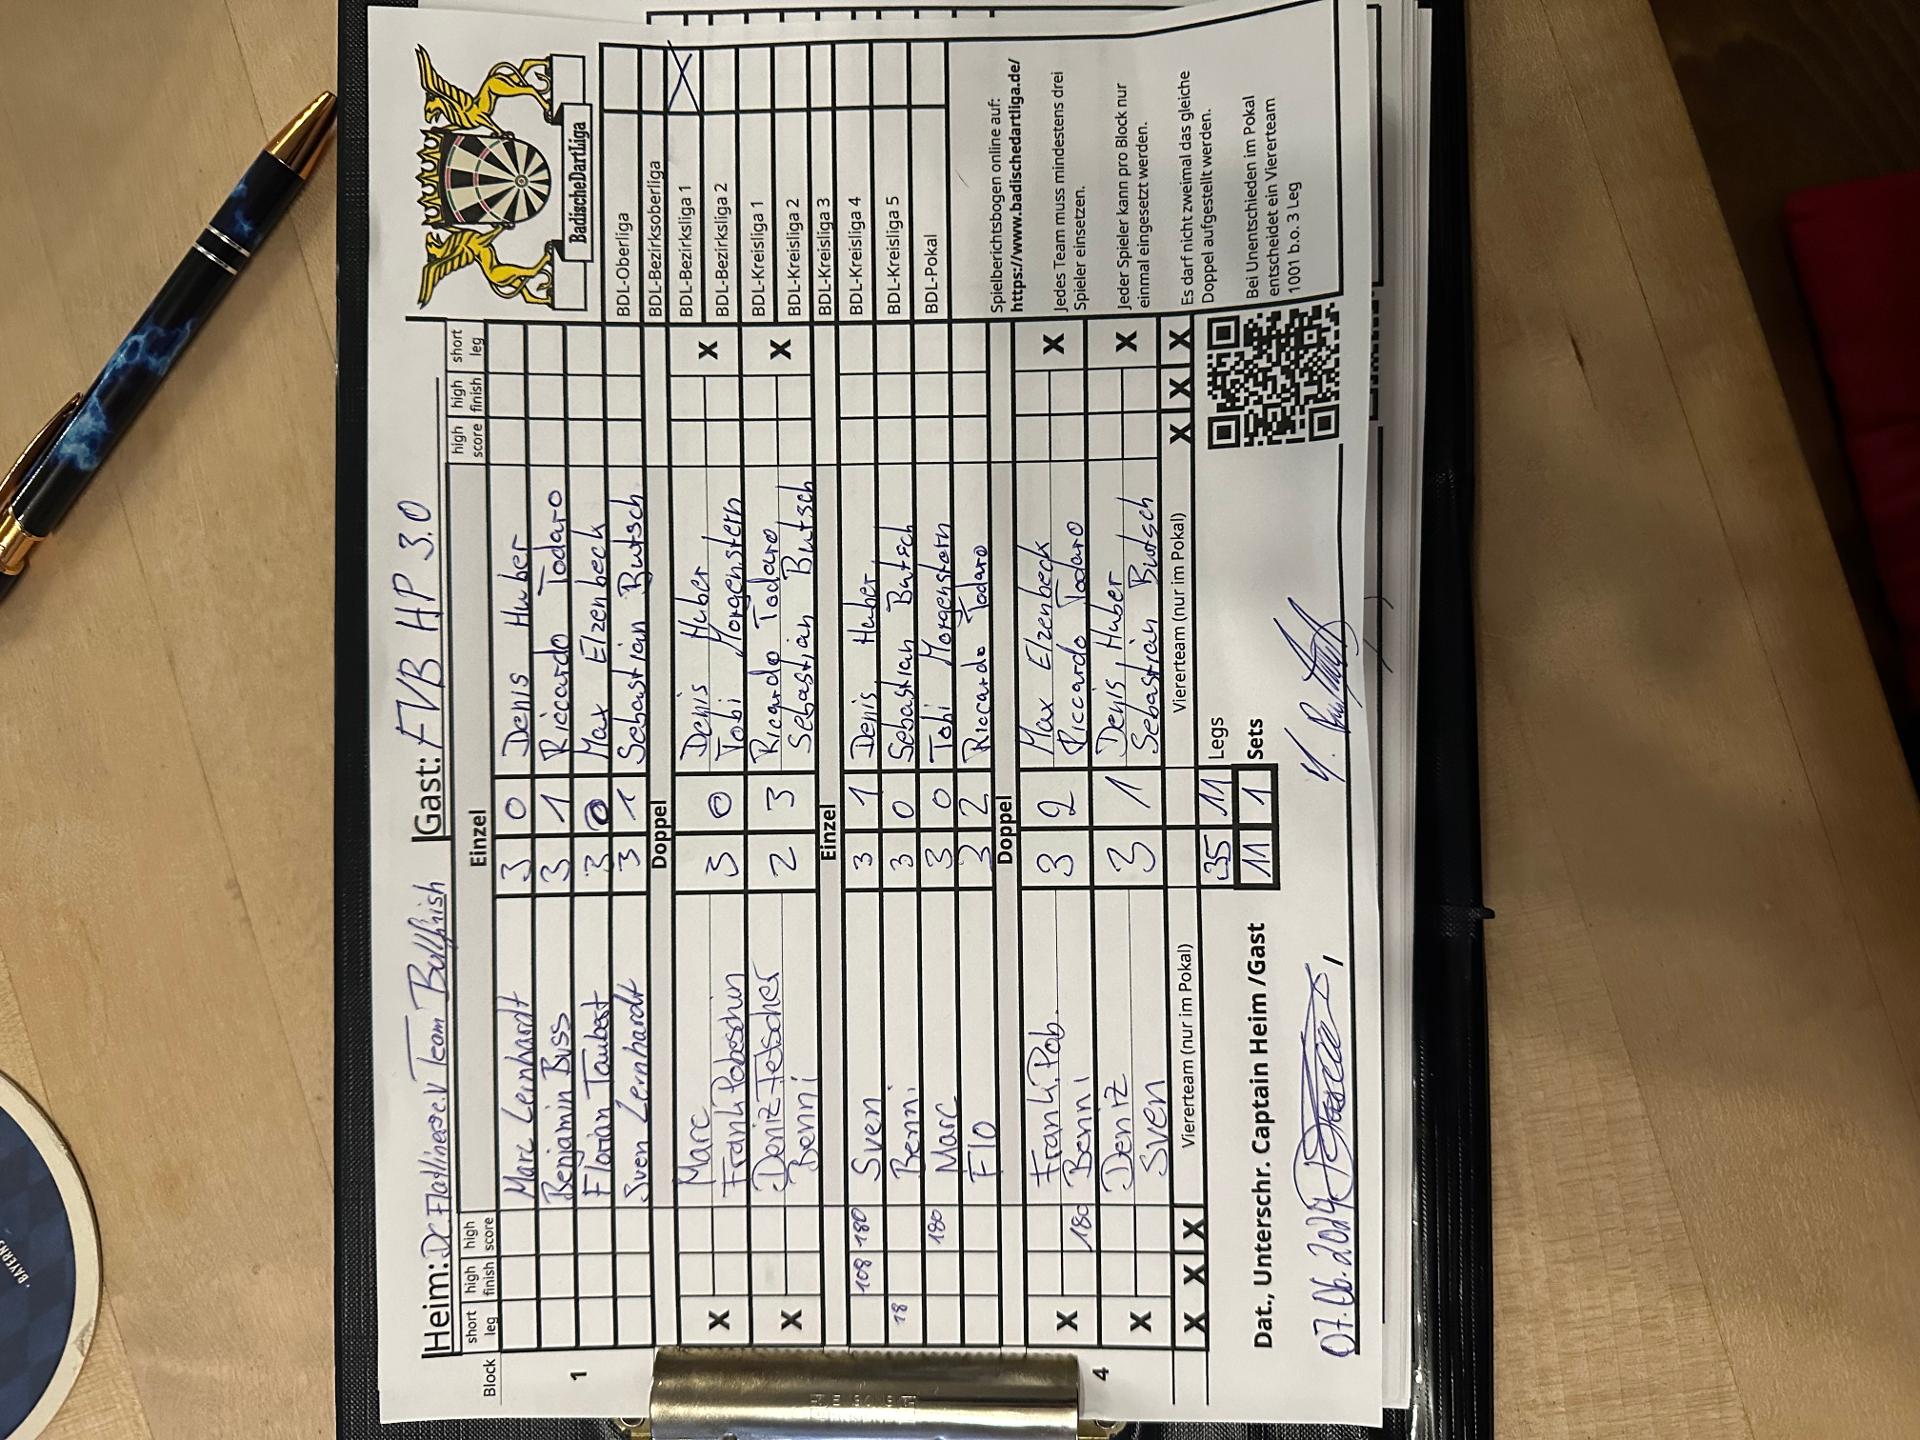 Heim: DC Flatliner e.V Team Bullfish Gast: FVB HP 3.0
BadischeDartliga
Block short leg high finish high score Einzel high score high finish short leg
Marc Leinhardt 3 0 Denis Huber
1 Benjamin Buss 3 1 Riccardo Todaro
Florian Taubert 3 0 Max Elzenbeck
Sven Lernhardt 3 1 Sebastian Butsch
Doppel
Marc 3 0 Denis Huber
X Frank Pobeschin Tobi Morgenstern X
Deniz Felscher 2 3 Riccardo Todaro
X Benni Sebastian Butsch X
Einzel
108 180 Sven 3 1 Denis Huber
18 Benni 3 0 Sebastian Butsch
180 Marc 3 0 Tobi Morgenstern
Flo 3 2 Riccardo Todaro
Doppel
Frank Pob. 3 2 Max Elzenbeck
X 180 Benni Riccardo Todaro X
4 Deniz 3 1 Denis Huber
X Sven Sebastian Butsch X
X X X Viererteam (nur im Pokal) Viererteam (nur im Pokal) X X X
35 11 Legs
Dat., Unterschr. Captain Heim /Gast 11 1 Sets
07.06.2024
BDL-Oberliga
BDL-Bezirksoberliga
BDL-Bezirksliga 1 X
BDL-Bezirksliga 2
BDL-Kreisliga 1
BDL-Kreisliga 2
BDL-Kreisliga 3
BDL-Kreisliga 4
BDL-Kreisliga 5
BDL-Pokal
Spielberichtsbogen online auf:
https://www.badischedartliga.de/
Jedes Team muss mindestens drei
Spieler einsetzen.
Jeder Spieler kann pro Block nur
einmal eingesetzt werden.
Es darf nicht zweimal das gleiche
Doppel aufgestellt werden.
Bei Unentschieden im Pokal
entscheidet ein Viererteam
1001 b.o. 3 Leg